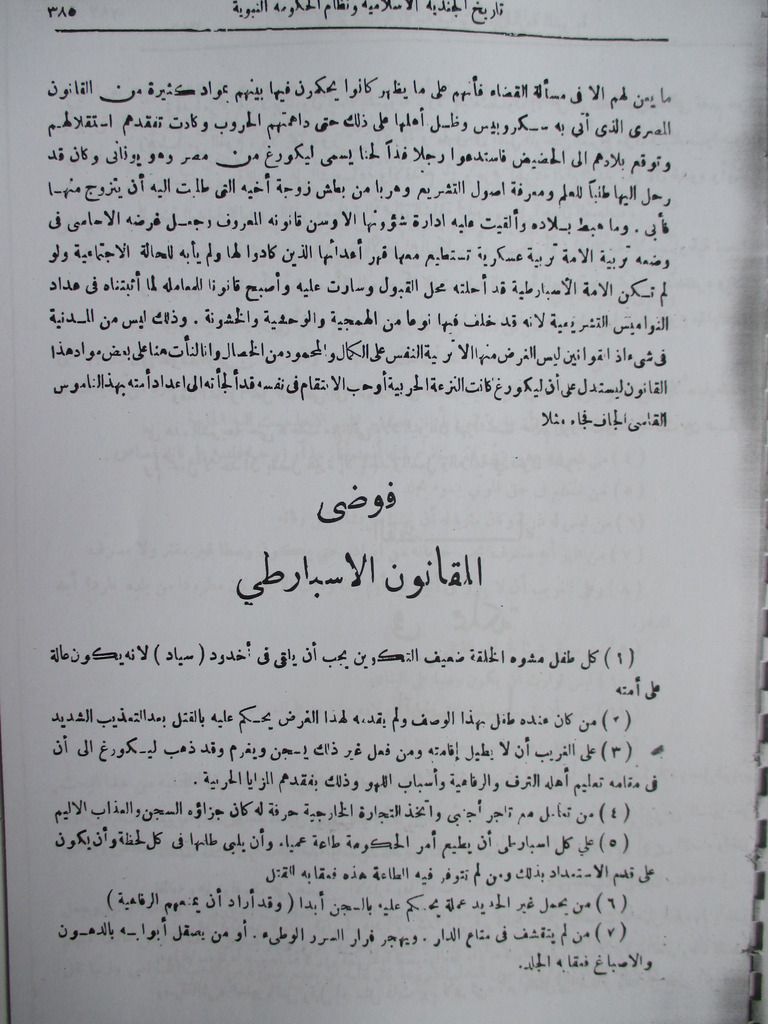 تاريخ الجندية الاسلامية ونظام الحكومة النبوية
٣٨٥
ما يعن لهم الا فى مسألة القضاء فأنهم على ما يظهر كانوا يحكمون فيها بينهم بمواد كثيرة من القانون
المصرى الذى أتى به سكروبيس وظل أهلها على ذلك حتى داهمتهم الحروب وكادت تفقدهم استقلالهم
وتوقع بلادهم الى الحضيض فاستدعوا رجلا فذاً لحنا يسمى ليكورغ من مصر وهو يونانى وكان قد
رحل اليها طلباً للعلم ومعرفة اصول التشريع وهربا من بطش زوجة أخيه التى طلبت اليه أن يتزوج منها
فأبى . وما هبط بلاده وألقيت عليه ادارة شؤونها الا وسن قانونه المعروف وجعل غرضه الاساسى فى
وضعه تربية الامة تربية عسكرية تستطيع معها قهر أعدائها الذين كادوا لها ولم يأبه للحالة الاجتماعية ولو
لم تكن الامة الاسبارطية قد أحلته محل القبول وسارت عليه وأصبح قانونا للمعامله لما أثبتناه فى عداد
النواميس التشريعية لانه قد خلف فيها نوعا من الهمجية والوحشية والخشونة . وذلك ليس من المدنية
فى شىء اذ القوانين ليس الغرض منها الا تربية النفس على الكمال والمحمود من الخصال وانا لنأت هنا على بعض مواد هذا
القانون ليستدل على أن ليكورغ كانت النزعة الحربية أو حب الانتقام فى نفسه قد ألجأته الى اعداد أمته بهذا الناموس
القاسى الجاف فجاء مثلا
فوضى
القانون الاسبارطي
(١) كل طفل مشوه الخلقة ضعيف التكوين يجب أن يلقى فى أخدود ( سياد ) لانه يكون عالة
على أمته
(٢) من كان عنده طفل بهذا الوصف ولم يقدمه لهذا الغرض يحكم عليه بالقتل بعد التعذيب الشديد
(٣) على الغريب أن لا يطيل إقامته ومن فعل غير ذلك يسجن ويغرم وقد ذهب ليكورغ الى أن
فى مقامه تعليم أهله الترف والرفاهية وأسباب اللهو وذلك يفقدهم المزايا الحربية .
(٤) من تعامل مع تاجر أجنبى واتخذ التجارة الخارجية حرفة له كان جزاؤه السجن والعذاب الاليم
(٥) على كل اسبارطى أن يطيع أمر الحكومة طاعة عمياء وأن يلبى طلبها فى كل لحظة وأن يكون
على قدم الاستعداد بذلك ومن لم تتوفر فيه الطاعة هذه فعقابه القتل
(٦) من يحمل غير الحديد عملة يحكم عليه بالسجن أبدا ( وقد أراد أن يمنعهم الرفاهية )
(٧) من لم يتقشف فى متاع الدار . ويهجر فرار السرر الوطىء . أو من يصقل أبوابه بالدهون
والاصباغ فعقابه الجلد.